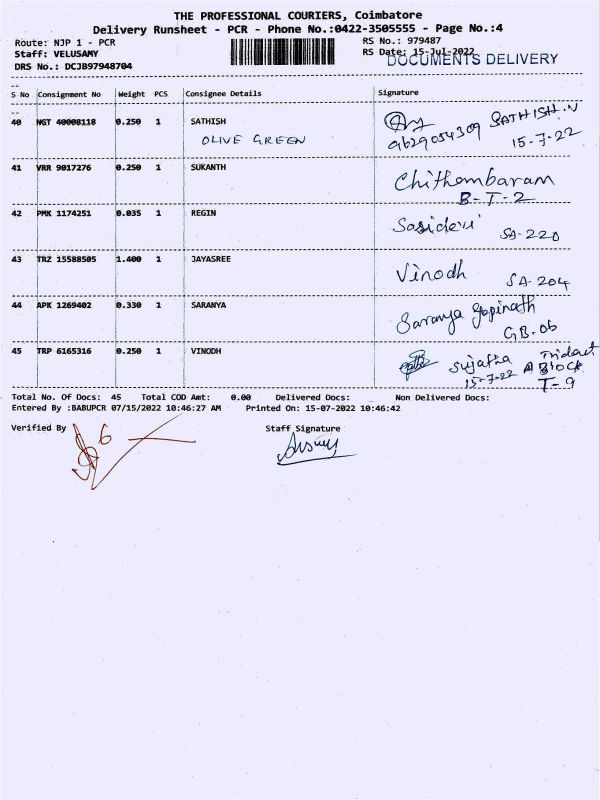 THE PROFESSIONAL COURIERS, Coimbatore
Delivery Runsheet - PCR - Phone No.:0422-3505555 - Page No.:4
Route: NJP 1 - PCR
RS No.: 979487
Staff: VELUSAMY
RS Date: 15-Jul-2022
DRS No.: DCJB97948704
DOCUMENTS DELIVERY
S No Consignment No Weight PCS Consignee Details Signature
40 NGT 40008118 0.250 1 SATHISH
SATHISH.N
OLIVE GREEN
9629054309 15-7-22
41 VRR 9017276 0.250 1 SUKANTH
Chithambaram
B-T-2
42 PMK 1174251 0.035 1 REGIN
Sasidevi SA-220
43 TRZ 15588505 1.400 1 JAYASREE
Vinodh SA-204
44 APK 1269402 0.330 1 SARANYA
Saranya Gopinath
GB-06
45 TRP 6165316 0.250 1 VINODH
Sujatha
15-7-22 A Block
T-9
Total No. Of Docs: 45 Total COD Amt: 0.00 Delivered Docs: Non Delivered Docs:
Entered By :BABUPCR 07/15/2022 10:46:27 AM Printed On: 15-07-2022 10:46:42
Verified By Staff Signature